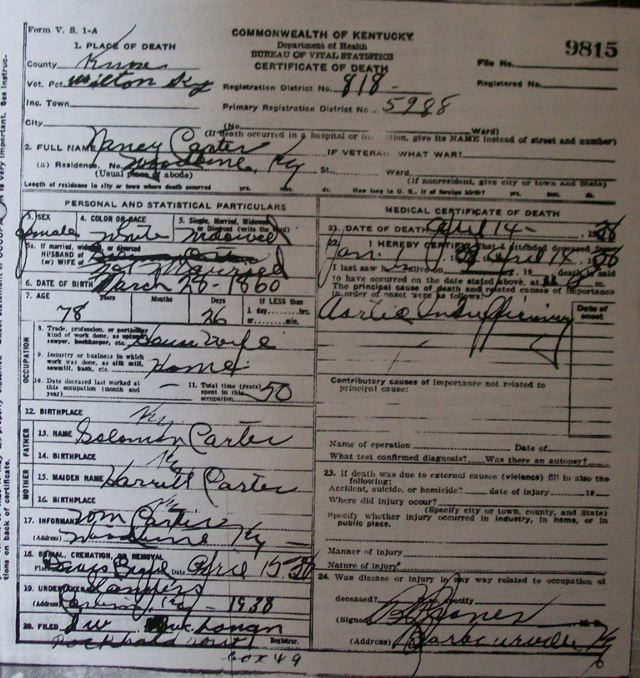 Form V. S. 1-A
COMMONWEALTH OF KENTUCKY
Department of Health
BUREAU OF VITAL STATISTICS
CERTIFICATE OF DEATH
9815
1. PLACE OF DEATH
County Knox
File No.
Vot. Pct. Wilton Ky
Registration District No. 818-
Registered No.
Inc. Town
Primary Registration District No. 5988
City
(No. Ward)
(If death occurred in a hospital or institution, give its NAME instead of street and number)
2. FULL NAME Nancy Carter
IF VETERAN, WHAT WAR?
(a) Residence, No. Woodbine, Ky St. Ward
(Usual place of abode)
(If nonresident, give city or town and State)
Length of residence in city or town where death occurred yrs. mos. ds. How long in U. S., if of foreign birth? yrs. mos. ds.
PERSONAL AND STATISTICAL PARTICULARS
3. SEX
4. COLOR OR RACE
5. Single, Married, Widowed or Divorced (write the word)
Female White Widowed
5a. If married, widowed, or divorced
HUSBAND of
(or) WIFE of
not Married
6. DATE OF BIRTH March 20-1860
7. AGE Years Months Days IF LESS than
1 day, hrs.
or min.
78 26
OCCUPATION
8. Trade, profession, or particular kind of work done, as spinner, sawyer, bookkeeper, etc. Housewife
9. Industry or business in which work was done, as silk mill, sawmill, bank, etc. Home
10. Date deceased last worked at this occupation (month and year)
11. Total time (years) spent in this occupation 50
12. BIRTHPLACE Ky
FATHER
13. NAME Solomon Carter
14. BIRTHPLACE Ky
MOTHER
15. MAIDEN NAME Harriett Carter
16. BIRTHPLACE Ky
17. INFORMANT Tom Carter
(Address) Woodbine Ky
18. BURIAL, CREMATION, OR REMOVAL
Place Date April 15 38
19. UNDERTAKER
(Address) Ky - 1938
20. FILED
Registrar.
Box 49
MEDICAL CERTIFICATE OF DEATH
21. DATE OF DEATH April 14- 1938
22. I HEREBY CERTIFY, That I attended deceased from
Jan. 1 38 April 14, 38
I last saw h alive on , 19 , death is said
to have occurred on the date stated above, at m.
The principal cause of death and related causes of importance
in order of onset were as follows:
Date of onset
Aortic Insufficiency
Contributory causes of importance not related to principal cause:
Name of operation Date of
What test confirmed diagnosis? Was there an autopsy?
23. If death was due to external causes (violence) fill in also the following:
Accident, suicide, or homicide? date of injury 19
Where did injury occur?
(Specify city or town, county, and State)
Specify whether injury occurred in industry, in home, or in public place.
Manner of injury
Nature of injury
24. Was disease or injury in any way related to occupation of
deceased? If so, specify
(Signed) Jones M. D.
(Address) Barbourville Ky